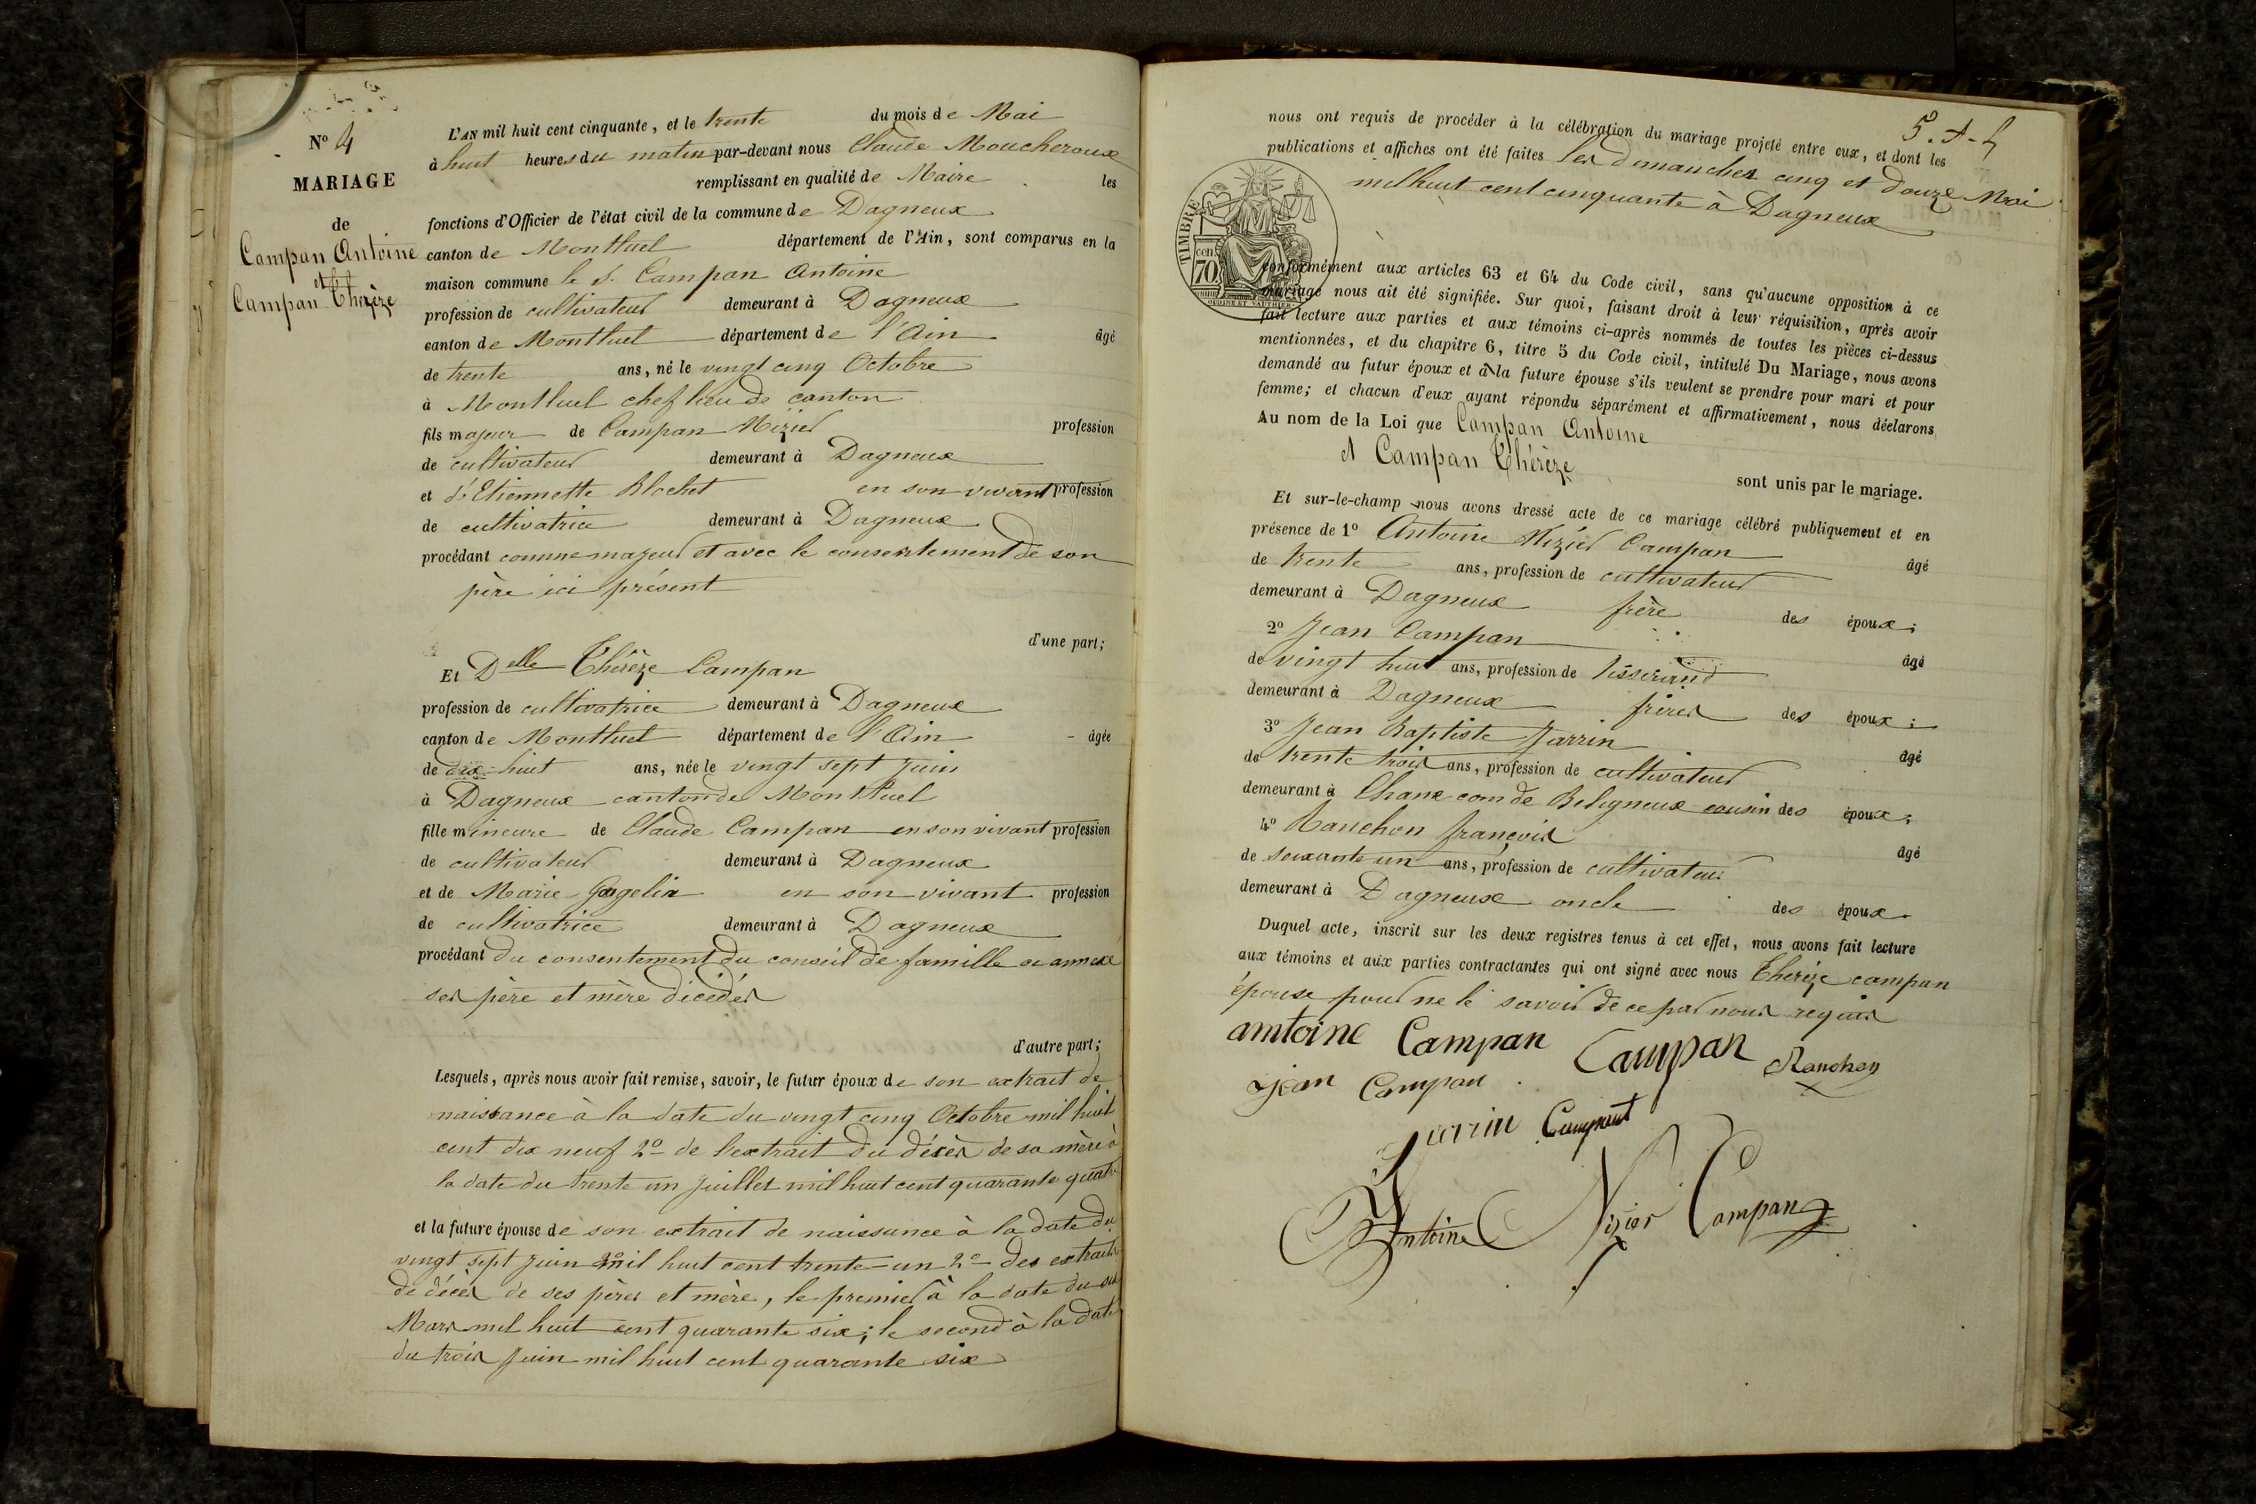 N° 4
MARIAGE
de
Campan Antoine
et
Campan Thérèze
L'AN mil huit cent cinquante, et le trente du mois de Mai
à huit heures du matin par-devant nous Claude Moucheroux
remplissant en qualité de Maire les
fonctions d'Officier de l'état civil de la commune de Dagneux
canton de Montluel département de l'Ain, sont comparus en la
maison commune le s. Campan Antoine
profession de cultivateur demeurant à Dagneux
canton de Montluel département de l'Ain âgé
de trente ans, né le vingt cinq Octobre
à Montluel chef lieu de canton
fils majeur de Campan Nizier profession
de cultivateur demeurant à Dagneux
et d'Etiennette Blochet en son vivant profession
de cultivatrice demeurant à Dagneux
procédant comme majeur et avec le consentement de son
père ici présent
d'une part;
Et Delle Thérèze Campan
profession de cultivatrice demeurant à Dagneux
canton de Montluel département de l'Ain âgée
de dix-huit ans, née le vingt sept Juin
à Dagneux canton de Montluel
fille mineure de Claude Campan en son vivant profession
de cultivateur demeurant à Dagneux
et de Marie en son vivant profession
de cultivatrice demeurant à Dagneux
procédant du consentement du conseil de famille ci annexé
ses père et mère décédés
d'autre part;
Lesquels, après nous avoir fait remise, savoir, le futur époux de son extrait de
naissance à la date du vingt cinq Octobre mil huit
cent dix neuf 2° de l'extrait du décès de sa mère à
la date du trente un Juillet mil huit cent quarante quatre
et la future épouse de son extrait de naissance à la date du
vingt sept Juin mil huit cent trente un 2° des extraits
de décès de ses pères et mère, le premier à la date du six
Mars mil huit cent quarante six; le second à la date
du trois Juin mil huit cent quarante six
nous ont requis de procéder à la célébration du mariage projeté entre eux, et dont les
publications et affiches ont été faites les dimanches cinq et douze Mai
mil huit cent cinquante à Dagneux
TIMBRE
cen.
70
conformément aux articles 63 et 64 du Code civil, sans qu'aucune opposition à ce
mariage nous ait été signifiée. Sur quoi, faisant droit à leur réquisition, après avoir
fait lecture aux parties et aux témoins ci-après nommés de toutes les pièces ci-dessus
mentionnées, et du chapitre 6, titre 5 du Code civil, intitulé Du Mariage, nous avons
demandé au futur époux et à la future épouse s'ils veulent se prendre pour mari et pour
femme; et chacun d'eux ayant répondu séparément et affirmativement, nous déclarons
Au nom de la Loi que Campan Antoine
et Campan Thérèze
sont unis par le mariage.
Et sur-le-champ nous avons dressé acte de ce mariage célébré publiquement et en
présence de 1° Antoine Nizier Campan
de trente ans, profession de cultivateur âgé
demeurant à Dagneux frère des époux;
2° Jean Campan
de vingt huit ans, profession de tisserand âgé
demeurant à Dagneux frères des époux;
3° Jean Baptiste Jarrin
de trente trois ans, profession de cultivateur âgé
demeurant à Chane com de Beligneux cousin des époux;
4° Ranchon françois
de soixante un ans, profession de cultivateur âgé
demeurant à Dagneux oncle des époux
Duquel acte, inscrit sur les deux registres tenus à cet effet, nous avons fait lecture
aux témoins et aux parties contractantes qui ont signé avec nous Thérèze campan
épouse pour ne le savoir de ce par nous requis
antoine Campan Campan Ranchon
jean Campan
Jarrin
Antoine Nizier Campan